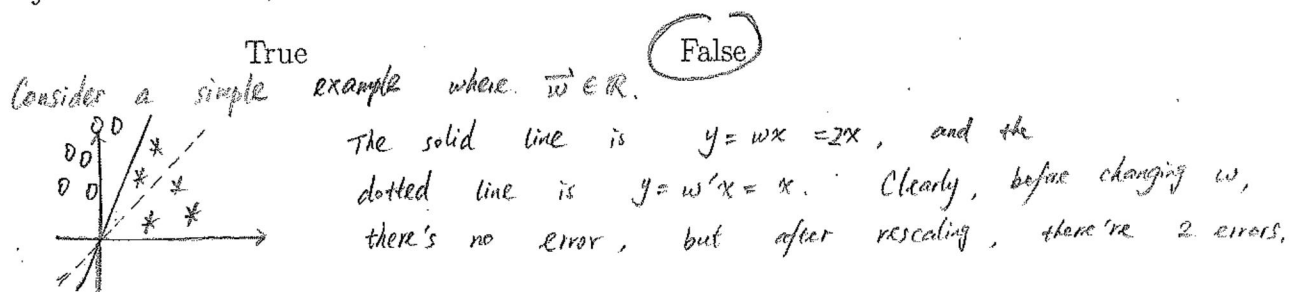 True False
Consider a simple example where. w⃗ ∈ ℝ.
The solid line is y = wx = 2x, and the
dotted line is y = w'x = x. Clearly, before changing w,
there's no error, but after rescaling, there're 2 errors.